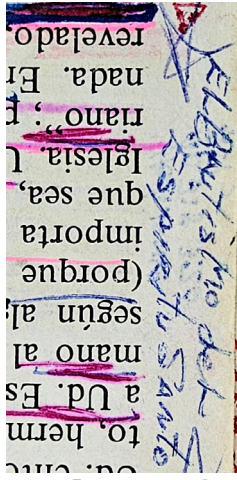 to, herm
a Ud. Es
mano al
según al
(porque
importa
que sea,
Iglesia. U
riano”; p
nada. En
revelado,
El Bautismo del
Espiritu Santo